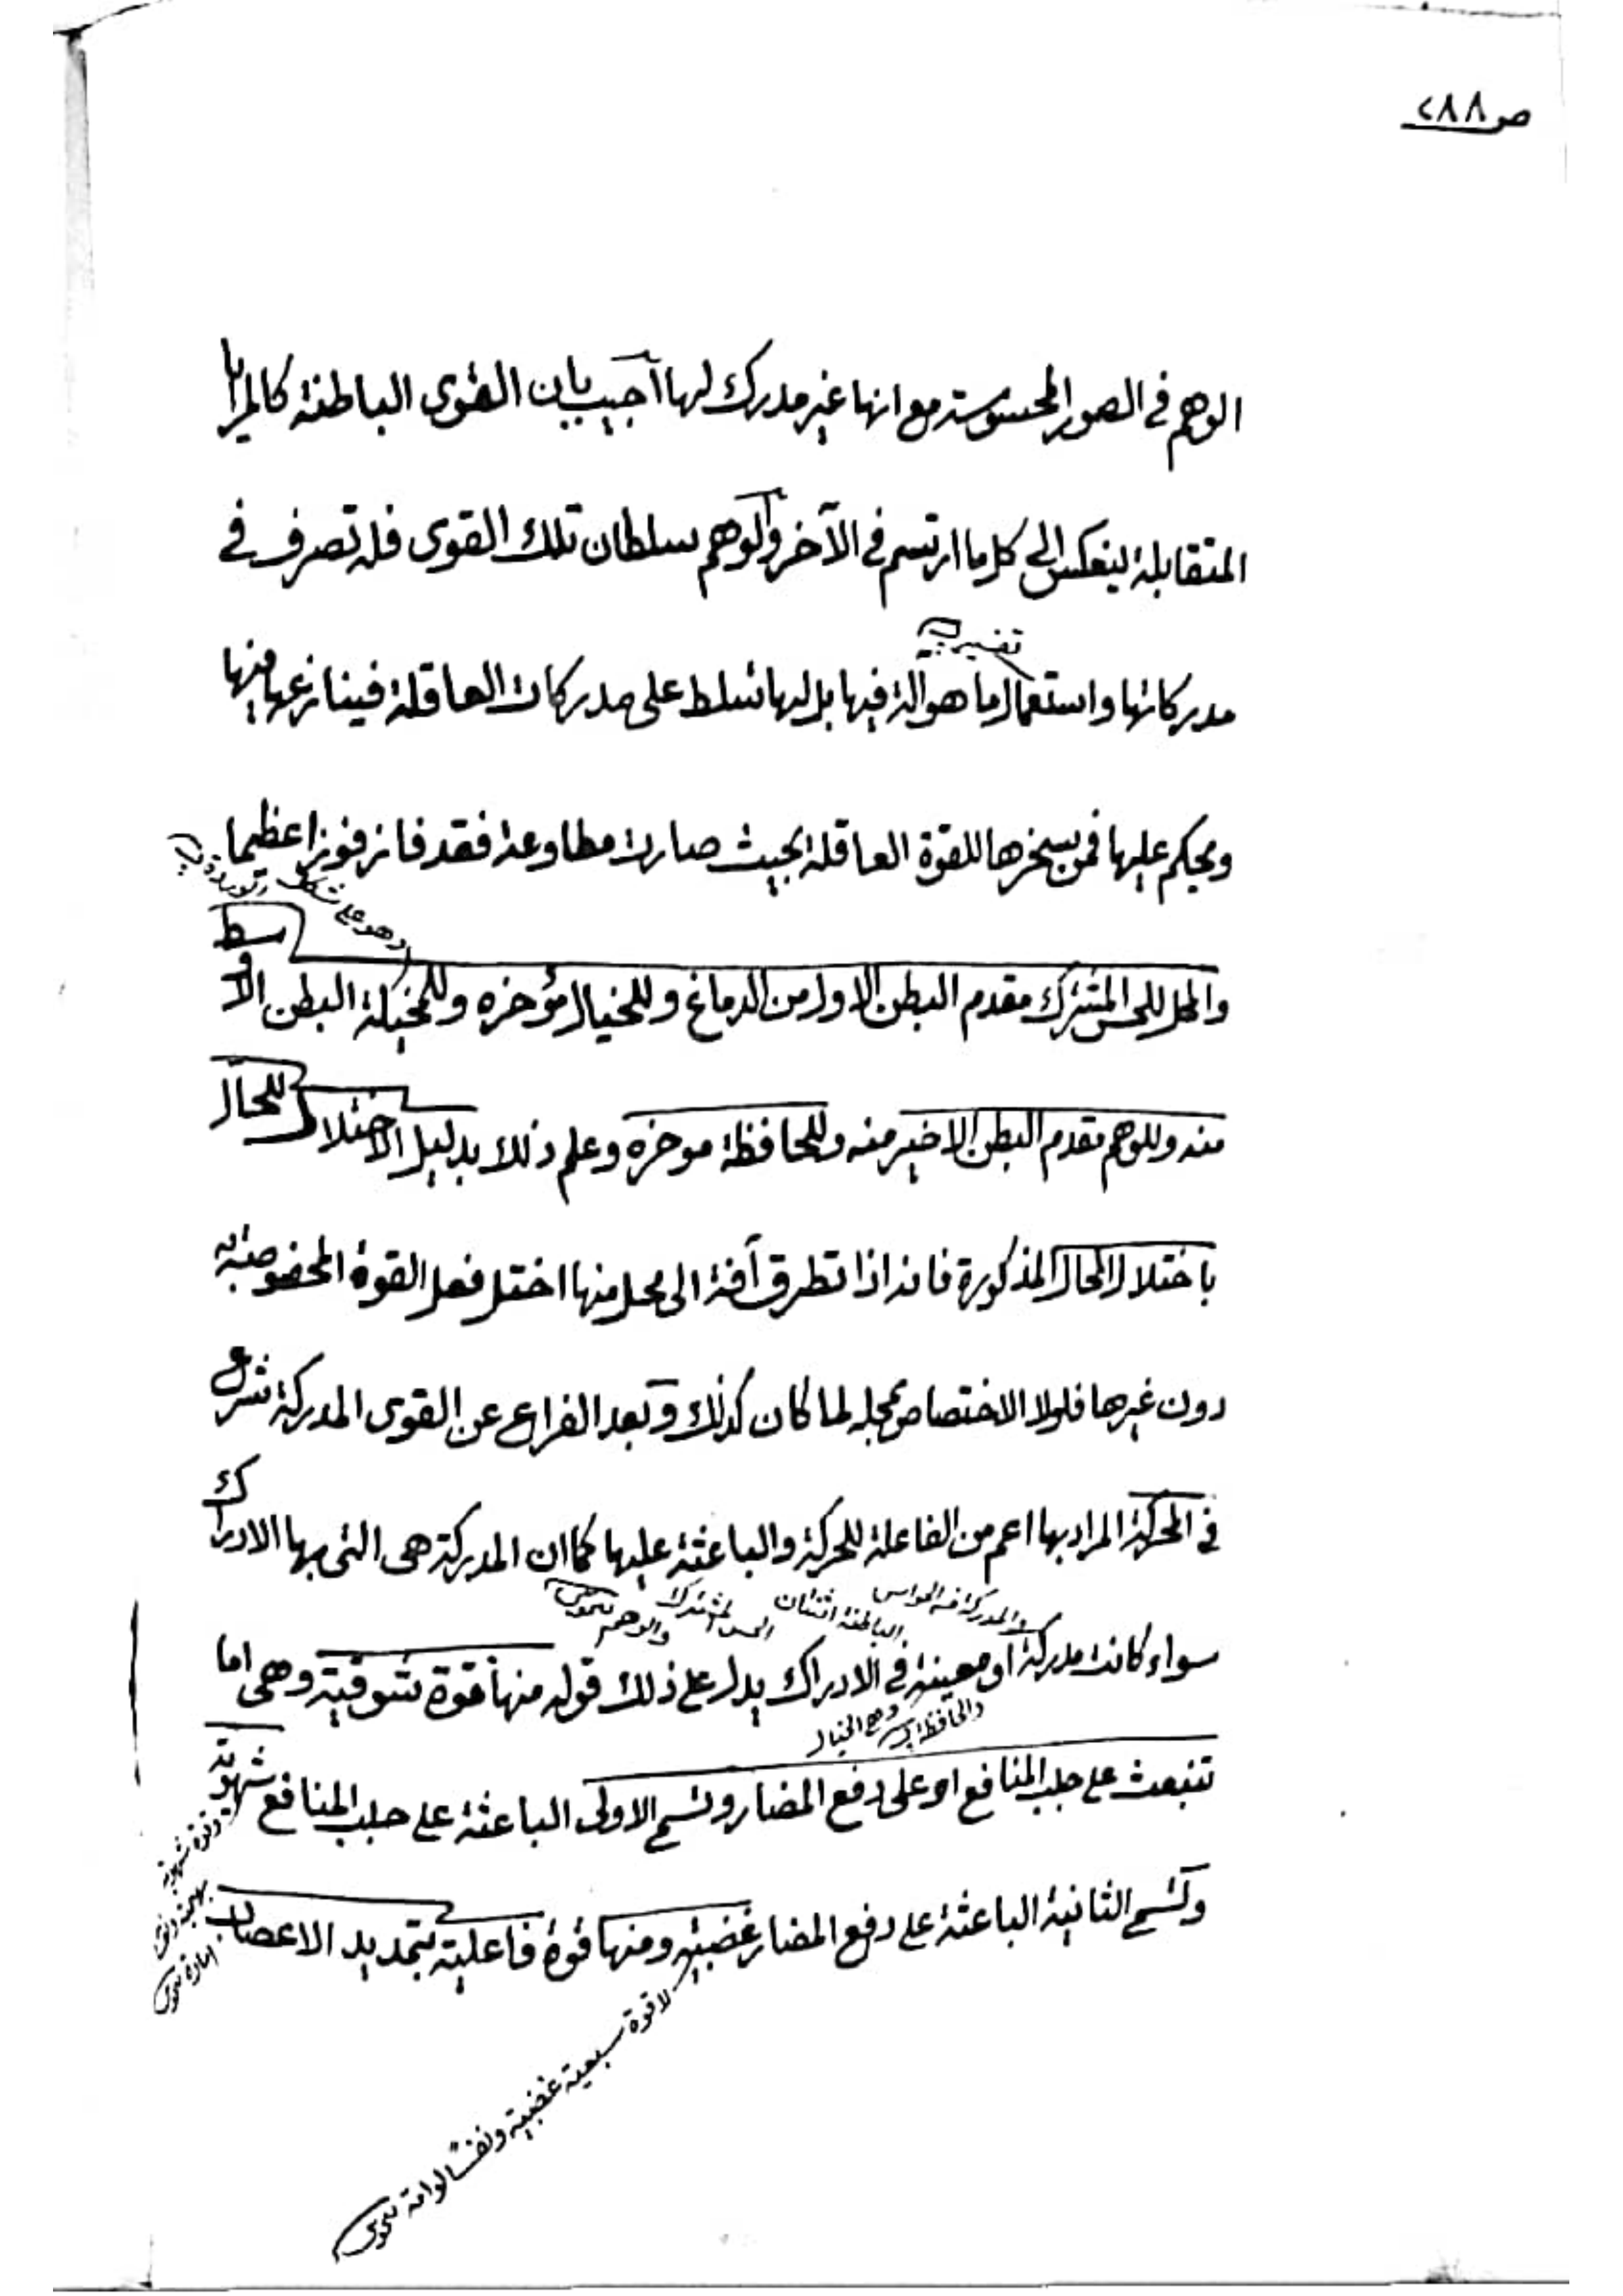 ص ٢٨٨
الوهم في الصور المحسوسة مع انها غير مدرك لها اجيب بان القوى الباطنة كالمرايا
المتقابلة لينعكس الى كل ما ارتسم في الآخر والوهم سلطان تلك القوى فله تصرف في
تفسير
مدركاتها واستعمال ما هو آلة فيها بل لها تسلط على مدركات العاقلة فينازعها فيها
ويحكم عليها فمن يسخرها للقوة العاقلة بحيث صارت مطاوعة فقد فاز فوزا عظيما
وهو على شكل
والمحل للحس المشترك مقدم البطن الاول من الدماغ وللخيال مؤخره وللمخيلة البطن الاوسط
منه وللوهم مقدم البطن الاخير منه وللحافظة موخره وعلم ذلك بدليل الاختلال للحال
باختلال المحال المذكورة فانه اذا تطرق آفة الى محل منها اختل فعل القوة المخصوصة به
دون غيرها فلولا الاختصاص بمحله لما كان كذلك وبعد الفراغ عن القوى المدركة شرع
في المحركة المراد بها اعم من الفاعلة للحركة والباعثة عليها كما ان المدركة هى التى بها الادراك
والمدركة من الحواس الباطنة اثنتان الحس المشترك والوهم
سواء كانت مدركة او معينة في الادراك يدل على ذلك قوله منها قوة شوقية وهى اما
والحافظة وهي الخيال
تنبعث على جلب المنافع او على دفع المضار وتسمى الاولى الباعثة على جلب المنافع شهوية
وقوة شهوية بهيمة ونفس امارة
وتسمى الثانية الباعثة على دفع المضار غضبية ومنها قوة فاعلية بتمديد الاعصاب
قوة سبعية غضبية ونفسا لوامة